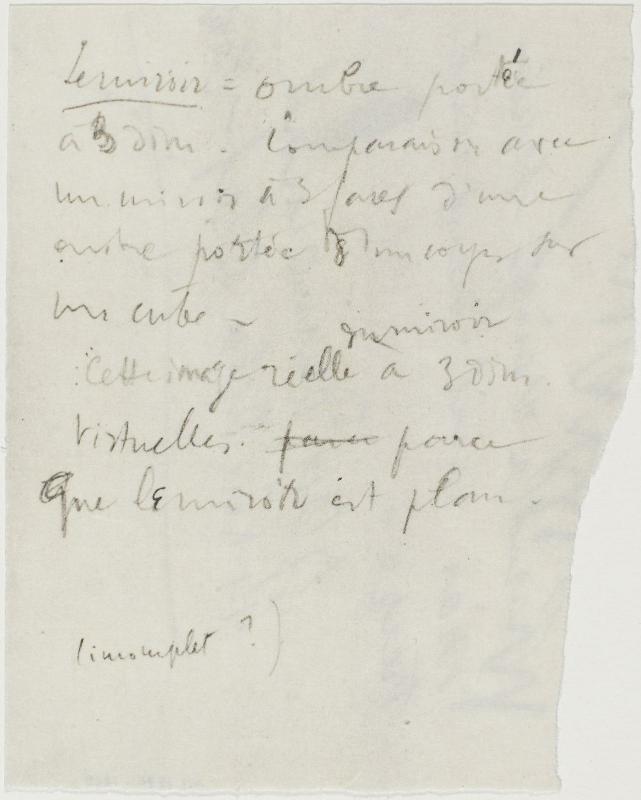 Le miroir = ombre portée
à 3 dim. Comparaison avec
un miroir à 3 faces d'une
ombre portée d'un corps sur
un cube –
du miroir
Cette image réelle a 3 dim.
virtuelles. parce
que le miroir est plan.
(incomplet ?)